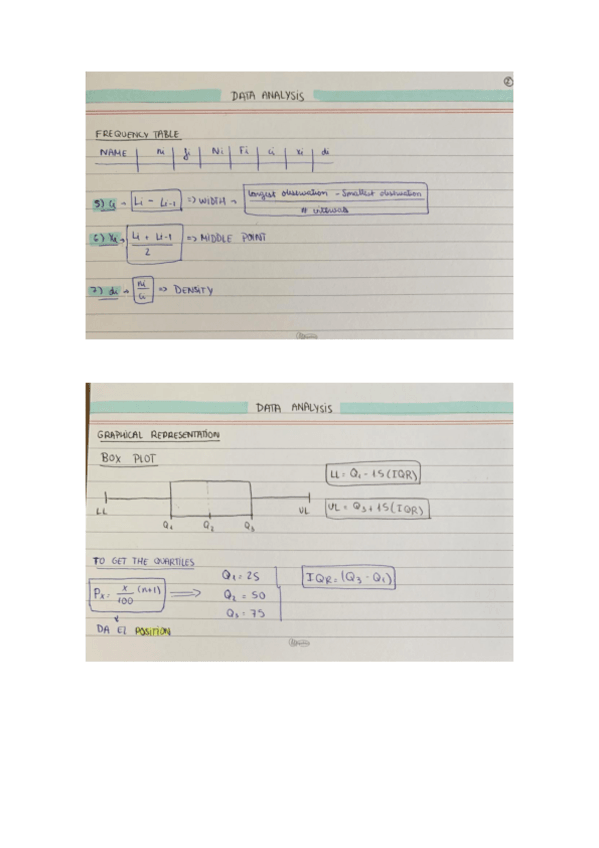 2
DATA ANALYSIS
FREQUENCY TABLE
NAME | ni | fi | Ni | Fi | ci | xi | di
5) ci → Li - Li-1 => WIDTH → longest observation - smallest observation
# intervals
6) xi → Li + Li-1 => MIDDLE POINT
2
7) di → ni => DENSITY
ci
DATA ANALYSIS
GRAPHICAL REPRESENTATION
BOX PLOT
LL = Q1 - 1.5 (IQR)
LL UL UL = Q3 + 1.5 (IQR)
Q1 Q2 Q3
TO GET THE QUARTILES
Q1 = 25 IQR = (Q3 - Q1)
Px = x (n+1) => Q2 = 50
100
Q3 = 75
DA EL POSITION